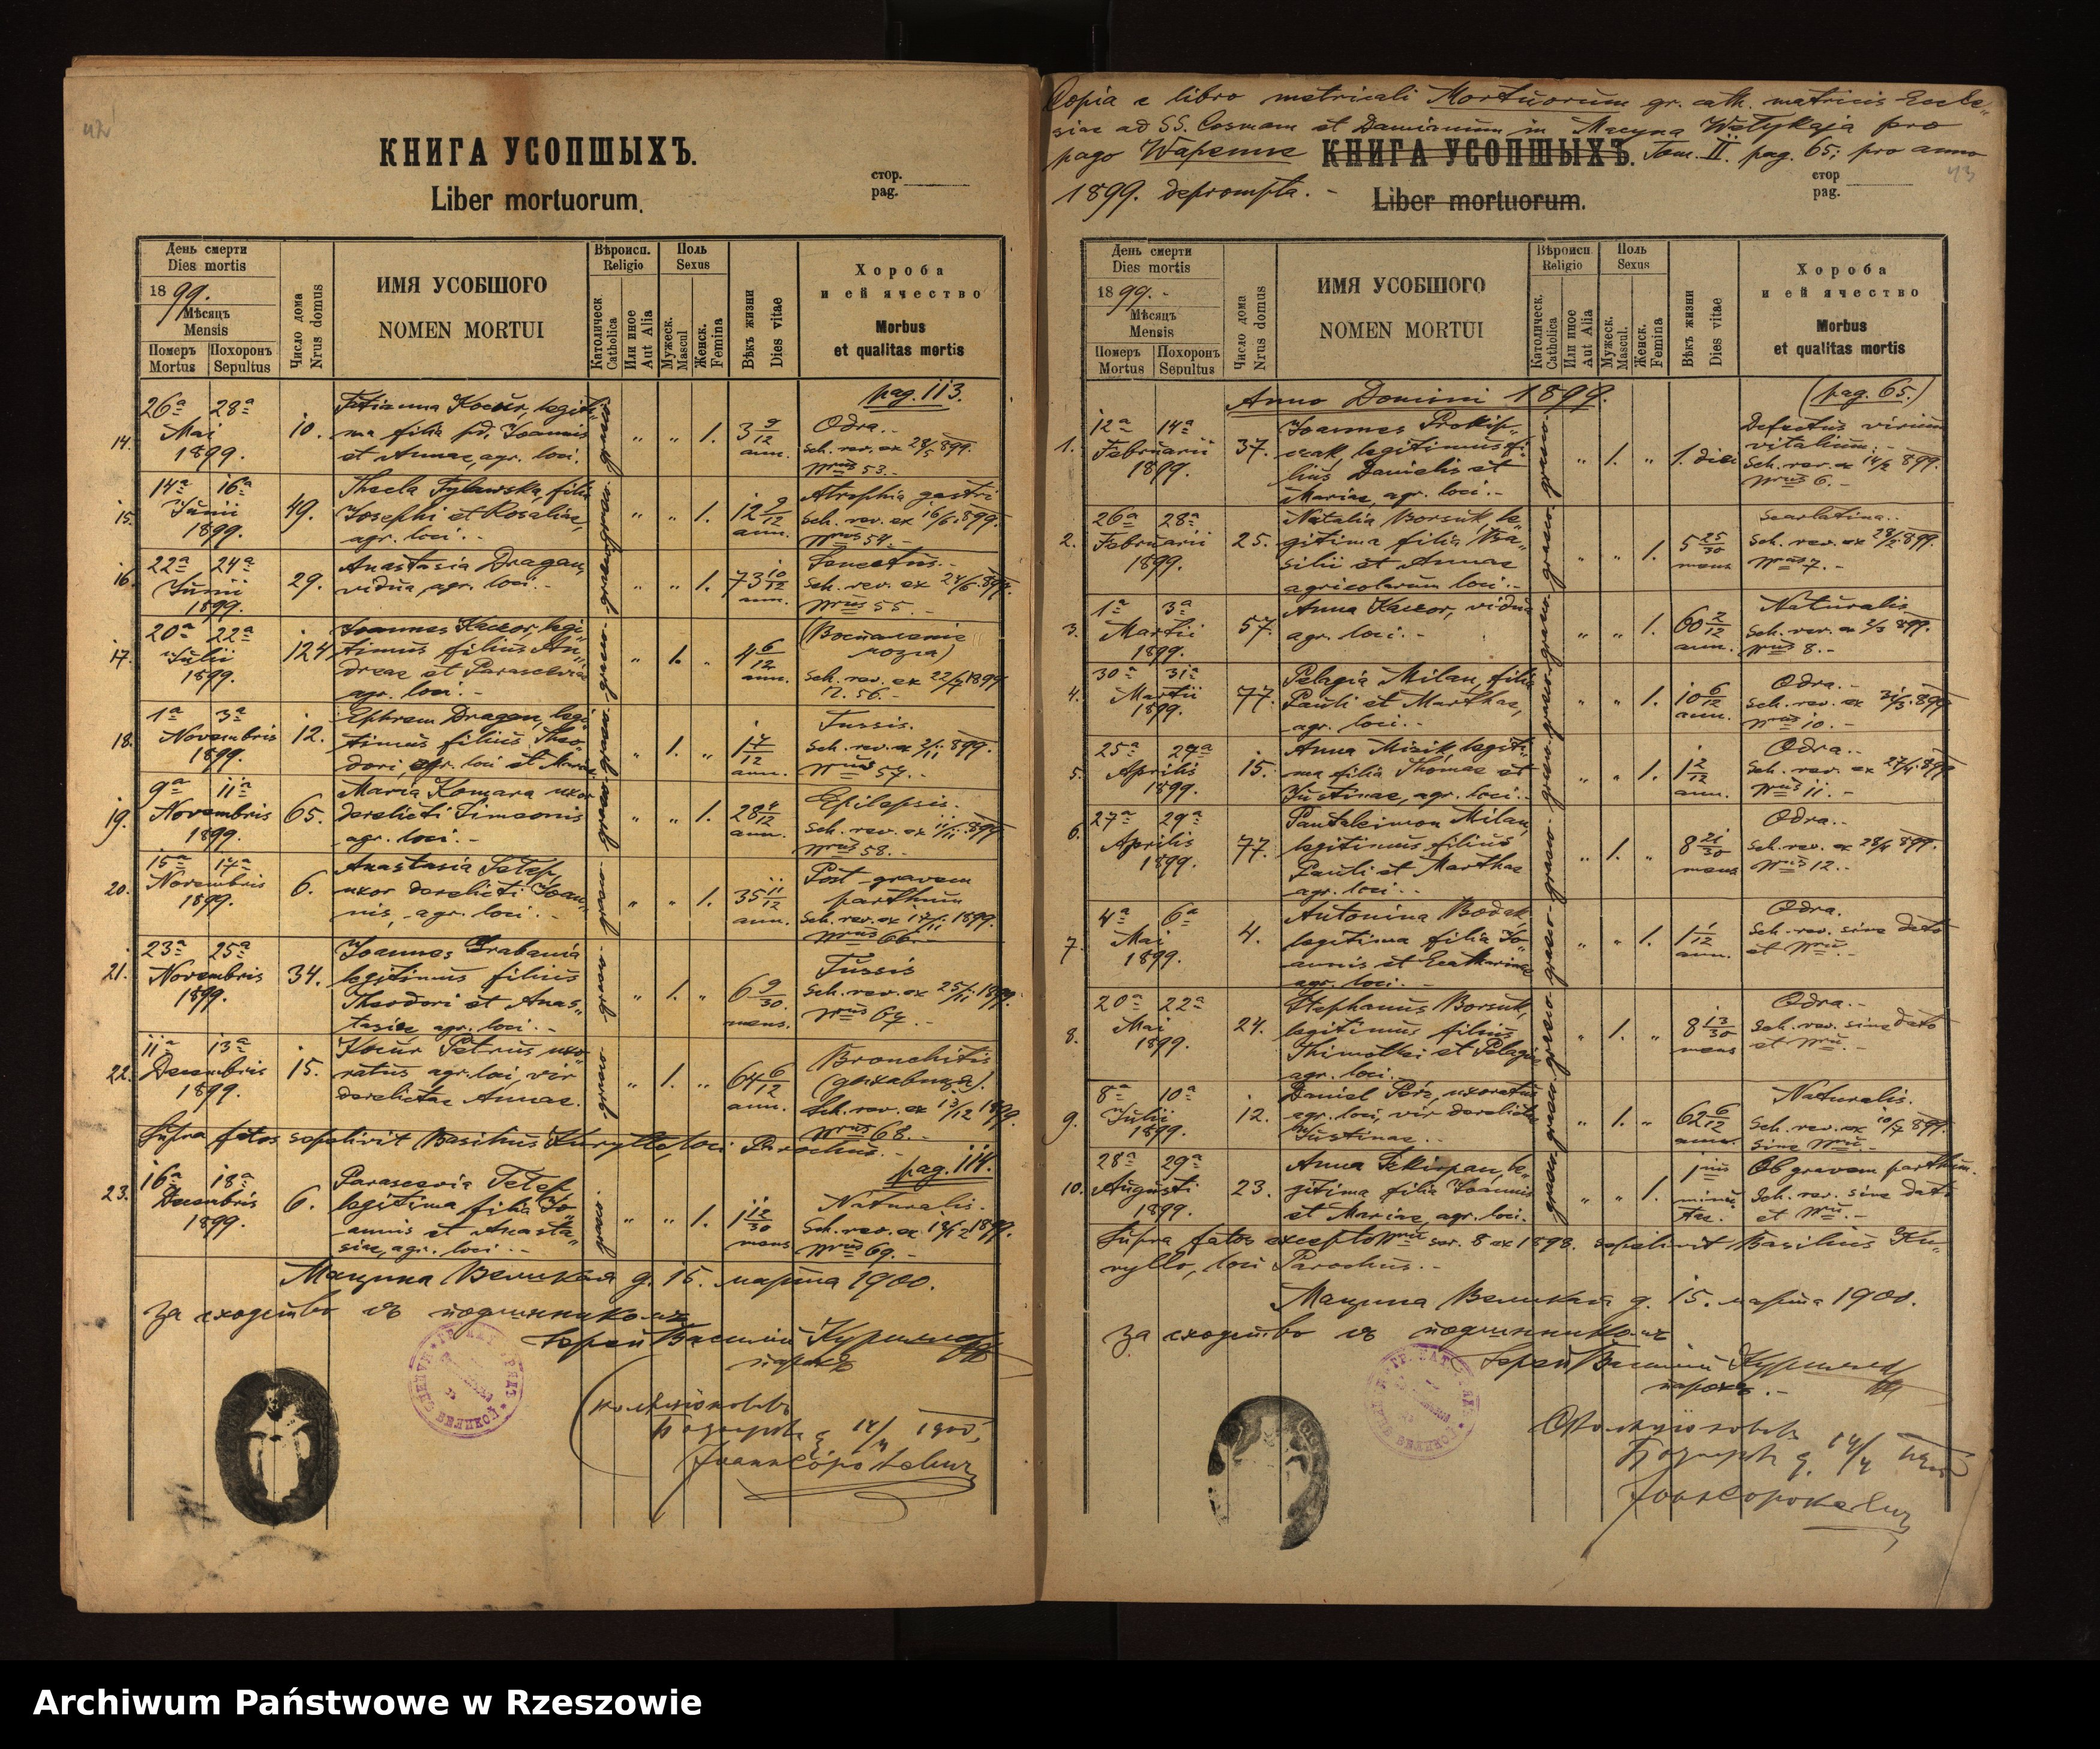 42
КНИГА УСОПШЫХЪ.
Liber mortuorum.
стор.
pag.
День смерти
Dies mortis
1899.
Мѣсяць
Mensis
Померъ
Mortus
Похоронъ
Sepultus
Число дома
Nrus domus
ИМЯ УСОБШОГО
NOMEN MORTUI
Вѣроисп.
Religio
Католическ.
Catholica
Или иное
Aut Alia
Поль
Sexus
Мужеск.
Mascul
Женск.
Femina
Вѣкъ жизни
Dies vitae
Хороба
и ей ячество
Morbus
et qualitas mortis
pag. 113.
14. 26ª 28ª Mai 1899. 10.
Kocur, legiti-
ma filia Joannis
et Annae, agr. loci.
graeco „ „ 1. 3 9/12 ann.
Odra.
Sch. rev. ex 28/5 899.
Nrus 53.-
15. 14ª 16ª Junii 1899. 49.
Thecla Fylawska, filia
Josephi et Rosaliae,
agr. loci.-
graeco „ „ 1. 12 9/12 ann.
Atrophia gastri
Sch. rev. ex 16/6 899.
Nrus 54.-
16. 22ª 24ª Junii 1899. 29.
Anastasia Dragan,
vidua, agr. loci.-
graeco „ „ 1. 73 10/12 ann.
Sch. rev. ex 24/6 899.
Nrus 55.-
17. 20ª 22ª Julii 1899. 124
Joannes Kaczor, legi-
timus filius An-
dreae et Parascevia
agr. loci.-
graeco „ 1. „ 4 6/12 ann.
(Воспаленіе
мозга)
Sch. rev. ex 22/7 1899
N. 56.-
18. 1ª 3ª Novembris 1899. 12.
Ephrem Dragan, legi-
timus filius Theo-
dori, agr. loci et Mariae
graeco „ 1. „ 1 4/12 ann.
Tussis.
Sch. rev. ex 3/11 899.
Nrus 57.-
19. 9ª 11ª Novembris 1899. 65.
Maria Komara uxor
derelicti Simeonis
agr. loci.-
graeco „ „ 1. 28 4/12 ann.
Epilepsis.
Sch. rev. ex 11/11 899
Nrus 58.-
20. 15ª 17ª Novembris 1899. 6.
Anastasia Telep,
uxor derelicti Joan-
nis, agr. loci.-
graeco „ „ 1. 35 11/12 ann.
Post gravem
parthum
Sch. rev. ex 17/11 1899.
Nrus 66.-
21. 23ª 25ª Novembris 1899. 34.
Joannes Grabania
legitimus filius
Theodori et Anas-
tasiae agr. loci.-
graeco „ 1. „ 6 9/30 mens.
Tussis
Sch. rev. ex 25/11 1899.
Nrus 67.-
22. 11ª 13ª Decembris 1899. 15.
Kocur Petrus uxo-
ratus agr. loci, vir
derelictae Annae.
graeco „ 1. „ 64 6/12 ann.
Bronchitis
(дыхавица).
Sch. rev. ex 13/12 1899.
Nrus 68.-
Supra fatos sepelivit Basilius Kuryllo, loci Parochus.-
pag. 114.
23. 16ª 18ª Decembris 1899. 6.
Parascevia Telep
legitima filia Jo-
annis et Anasta-
siae, agr. loci.-
graeco „ „ 1. 1 12/30 mens
Naturalis.
Sch. rev. ex 18/12 1899.
Nrus 69.-
Мацина Великая д. 15. марта 1900.
За сходство съ подлинникомъ
Іерей Василій Курилло
парохъ
Бодакъ д. 14/4 1900.
43
Copia e libro metricali Mortuorum gr. cath. matricis Eccle-
siae ad SS. Cosmam et Damianum in Macyna Wełykaja pro
pago Wapenne КНИГА УСОПШЫХЪ. Tom. II. pag. 65; pro anno
1899. deprompta.-
Liber mortuorum.
стор
pag.
День смерти
Dies mortis
1899.-
Мѣсяць
Mensis
Померъ
Mortus
Похоронъ
Sepultus
Число дома
Nrus domus
ИМЯ УСОБШОГО
NOMEN MORTUI
Вѣроисп
Religio
Католическ.
Catholica
Или иное
Aut Alia
Поль
Sexus
Мужеск.
Mascul.
Женск.
Femina
Вѣкъ жизни
Dies vitae
Хороба
и ей ячество
Morbus
et qualitas mortis
Anno Domini 1899.
(pag. 65.)
1. 12ª 14ª Februarii 1899. 37.
Joannes Prokip-
czak, legitimus fi-
lius Danielis et
Mariae, agr. loci.-
graeco „ 1. „ 1. diei
Defectus virium
vitalium.-
Sch. rev. ex 14/2 899.
Nrus 6.-
2. 26ª 28ª Februarii 1899. 25.
Natalia Borsuk, le-
gitima filia Ba-
silii et Annae
agricolarum loci.-
graeco „ „ 1. 5 25/30 mens
Scarlatina.
Sch. rev. ex 28/2 899.
Nrus 7.-
3. 1ª 3ª Martii 1899. 57.
Anna Kaczor, vidua
agr. loci.-
graeco „ „ 1. 60 2/12 ann.
Naturalis
Sch. rev. ex 3/3 899.
Nrus 8.-
4. 30ª 31ª Martii 1899. 77.
Pelagia Milan, filia
Pauli et Marthae,
agr. loci.-
graeco „ „ 1. 10 6/12 ann.
Odra.-
Sch. rev. ex 31/3 899
Nrus 10.-
5. 25ª 27ª Aprilis 1899. 15.
Anna Misik, legiti-
ma filia Thomae et
Justinae, agr. loci.-
graeco „ „ 1. 1 2/12 ann.
Odra.-
Sch. rev. ex 27/4 899
Nrus 11.-
6. 27ª 29ª Aprilis 1899. 77.
Pantaleimon Milan,
legitimus filius
Pauli et Marthae
agr. loci.-
graeco „ 1. „ 8 21/30 mens
Odra.-
Sch. rev. ex 28/4 899.
Nrus 12.-
7. 4ª 6ª Mai 1899. 4.
Antonina Bodak
legitima filia Jo-
annis et Ecatharinae
agr. loci.-
graeco „ „ 1. 1 1/12 ann.
Odra.
Sch. rev. sine dato
et Nru.-
8. 20ª 22ª Mai 1899. 24.
Stephanus Borsuk,
legitimus filius
Thimothei et Pelagiae
agr. loci.
graeco „ 1. „ 8 13/30 mens
Odra.-
Sch. rev. sine dato
et Nru.-
9. 8ª 10ª Julii 1899. 12.
Daniel Pyrz, uxoratus
agr. loci, vir derelictae
Justinae.-
graeco „ 1. „ 62 6/12 ann.
Naturalis.
Sch. rev. ex 10/7 899.
sine Nru.-
10. 28ª 29ª Augusti 1899. 23.
Anna le-
gitima filia Joannis
et Mariae, agr. loci.
graeco „ „ 1.
Ob gravem parthum.
Sch. rev. sine dato
et Nru.-
Supra fatos excepto Nru ser. 8 ex 1898. sepelivit Basilius Ku-
ryllo, loci Parochus.-
Мацина Великая д. 15. марта 1900.
За сходство съ подлинникомъ
Іерей Василій Курилло
парохъ.-
д. 14/4
Archiwum Państwowe w Rzeszowie